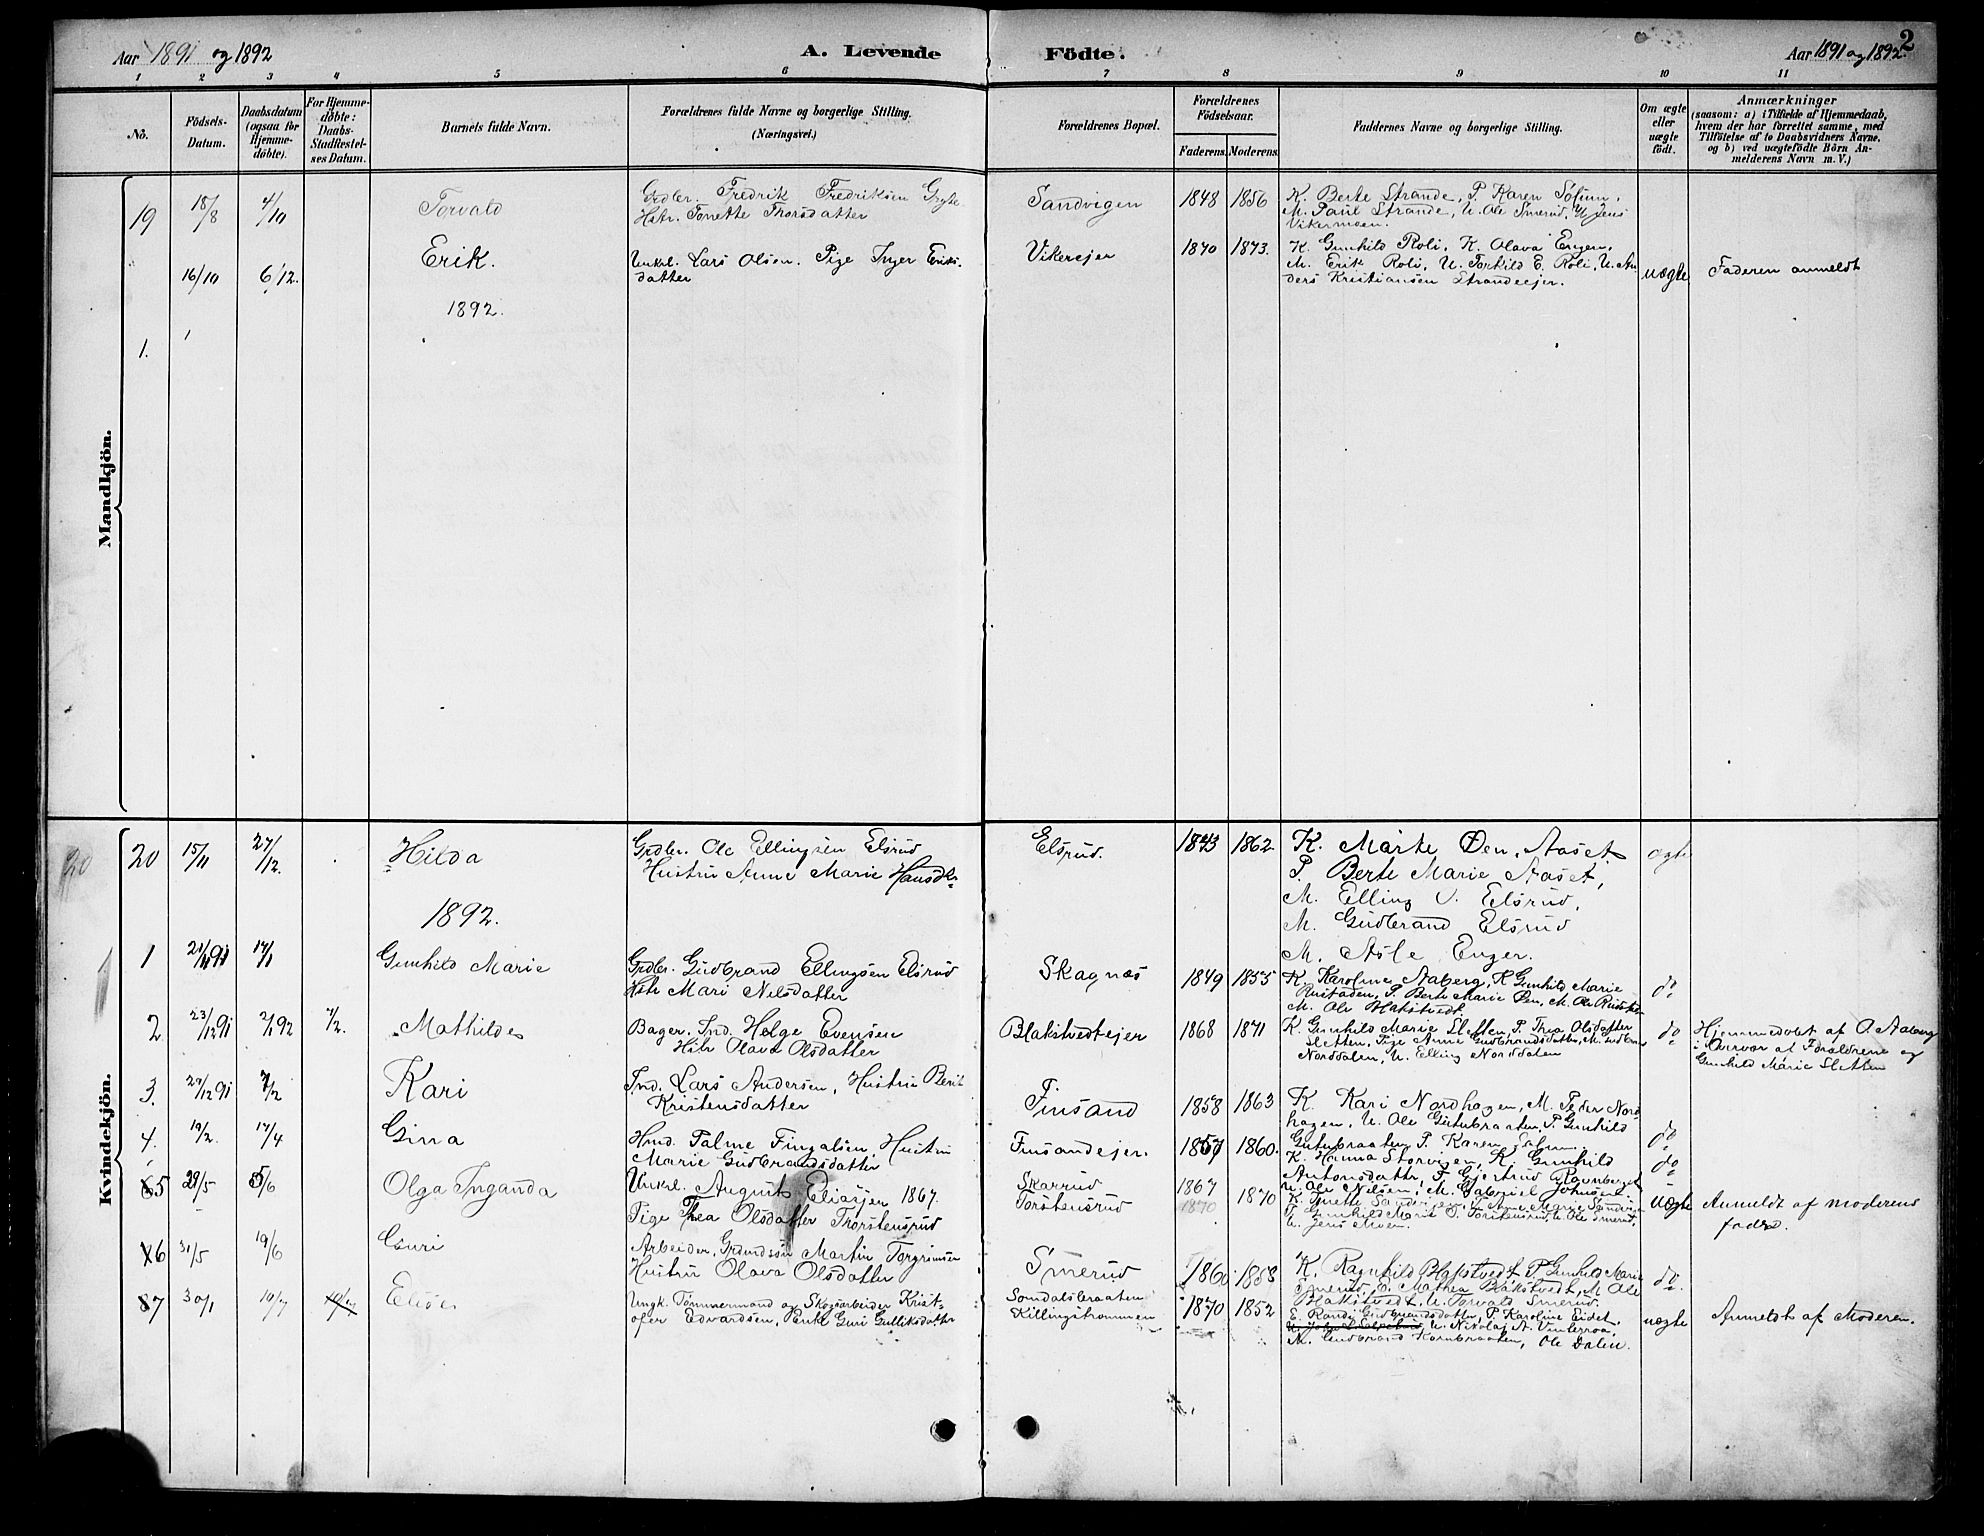 Aar 1891 og 1892
A. Levende Födte.
Aar 1891 og 1892. 2
1 2 3 4 5 6 7 8 9 10 11
No.
Födsels-Datum.
Daabsdatum (ogsaa for Hjemme-döbte).
For Hjemme-döbte: Daabs-Stadfæstel-ses Datum.
Barnets fulde Navn.
Forældrenes fulde Navne og borgerlige Stilling. (Næringsvei.)
Forældrenes Bopæl.
Forældrenes Födselsaar.
Faderens. Moderens.
Faddernes Navne og borgerlige Stilling.
Om ægte eller uægte födt.
Anmærkninger
(saasom: a) i Tilfælde af Hjemmedaab, hvem der har forrettet samme, med Tilföielse af to Daabsvidners Navne, og b) ved uægtefödte Börn An-melderens Navn m. V.)
Mandkjön.
19 18/8 4/10 Torvald
Grdbr. Fredrik Fredriksen
Hstr. Tonette Thorsdatter
Sandvigen 1848 1856
K. Berte Strande, P. Karen
M. Paul Strande, U. Ole Smerud, U. Jens
Vikermoen.
16/10 6/12. Erik.
Unkrl. Lars Olsen. Pige Inger Eriks-
datter
Vikerejer 1870 1873.
K. Gunhild Roli, K. Olava Engen,
M. Erik Roli, U. Torkild E. Roli, U. An
ders Kristiansen Strandeejer.
uægte Faderen anmeldt
1892.
1.
Kvindekjön.
20 20 15/11 27/12. Hilda
Grdbr. Ole Ellingsen Elsrud
Hustru Anne Marie Hansdtr
Elsrud. 1843 1862.
K. Marte Øen, Aaset
P. Berte Marie Aaset,
M. Elling O. Elsrud,
M. Gudbrand Elsrud
M. Asle Enger.
ægte
1892.
1 21/11 91 17/1 Gunhild Marie
Grdbr. Gudbrand Ellingsen Elsrud
Hstr Mari Nilsdatter
Skagnæs 1849 1855
K. Karoline Aaberg, K Gunhild Marie
Rustaden, P. Berte Marie Øen, M. Ole
M. Ole Hakstvedt
do
2 23/12 91 2/1 92 7/2. Mathilde
Bager. Ind. Helge Evensen
Hstr Olava Olsdatter
Blakstvedtejer 1868 1871
K. Gunhild Marie Sletten, P. Thea Olsdatter
Sletten, Pige Anne Gudbrandsdatter, M. Gudbran
Norddalen, U. Elling Norddalen
do
Hjemmedøbt af O. Aaberg
i Overvær af Forældrene og
Gunhild Marie Sletten
3. 27/12 91 7/2 Kari
Ind. Lars Andersen, Hustru Berit
Kristensdatter
Finsand 1858 1863
K. Kari Nordhagen, M. Peder Nord
hagen, U. Ole Gutubraaten, P. Gunhild
Gutubraaten, P. Karen
do
4. 19/2. 17/4 Gina
Hmd. Palme Fingalsen, Hustru
Marie Gudbrandsdatter
Finsandejer. 1857 1860.
K. Hanna Storvigen, K. Gunhild
Antonsdatter, P. Gjertrud Ravnberget
U. Ole Nilsen, M. Gabriel Johnsen
do
5 28/5 5/6 Olga Inganda
Unkrl. August Eliasjen 1867.
Pige Thea Olsdatter Thorstensrud
Skarrud
Torstensrud
1867 1870 1870
K. Tonette Sandvigen, P. Anne Marie Sandvig
P. Gunhild Marie O. Torstensrud, U. Ole Smerud,
U. Jens Moen.
uægte Anmeldt af moderens
fader.
6 31/5 19/6 Guri
Arbeider, Grdmdsøn Martin Torgrimsen
Hustru Olava Olsdatter
Smerud 1860 1858
K. Ragnhild Blakstvedt, P. Gunhild Marie
Smerud, P. Mathea Blakstvedt, M Ole
Blakstvedt, U. Torvald Smerud.
do
7 30/1 10/7 Elise
Ungk. Tømmermand og Skogsarbeider Krist-
ofer Edvardsen, Enke Guri Gulliksdatter
Somdalsbraaten
Killingstrømmen
1870 1852
E. Randi Gudbrandsdatter, P. Karoline Eidet,
U. Nikolaj A. Vinterroa,
M. Gudbrand Kornbraaten, Ole Dalen.
uægte Anmeldt af Moderen.